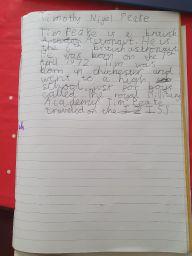 Timothy Nigel Peake
Tim Peake is a british
Astronaut. He is
the british astronaut
He was born on the 7
April 1972 Tim was
born in chichester and
went to a high
school just for boys
called the royal
Academy Tim Peake
traveled on the I.S.